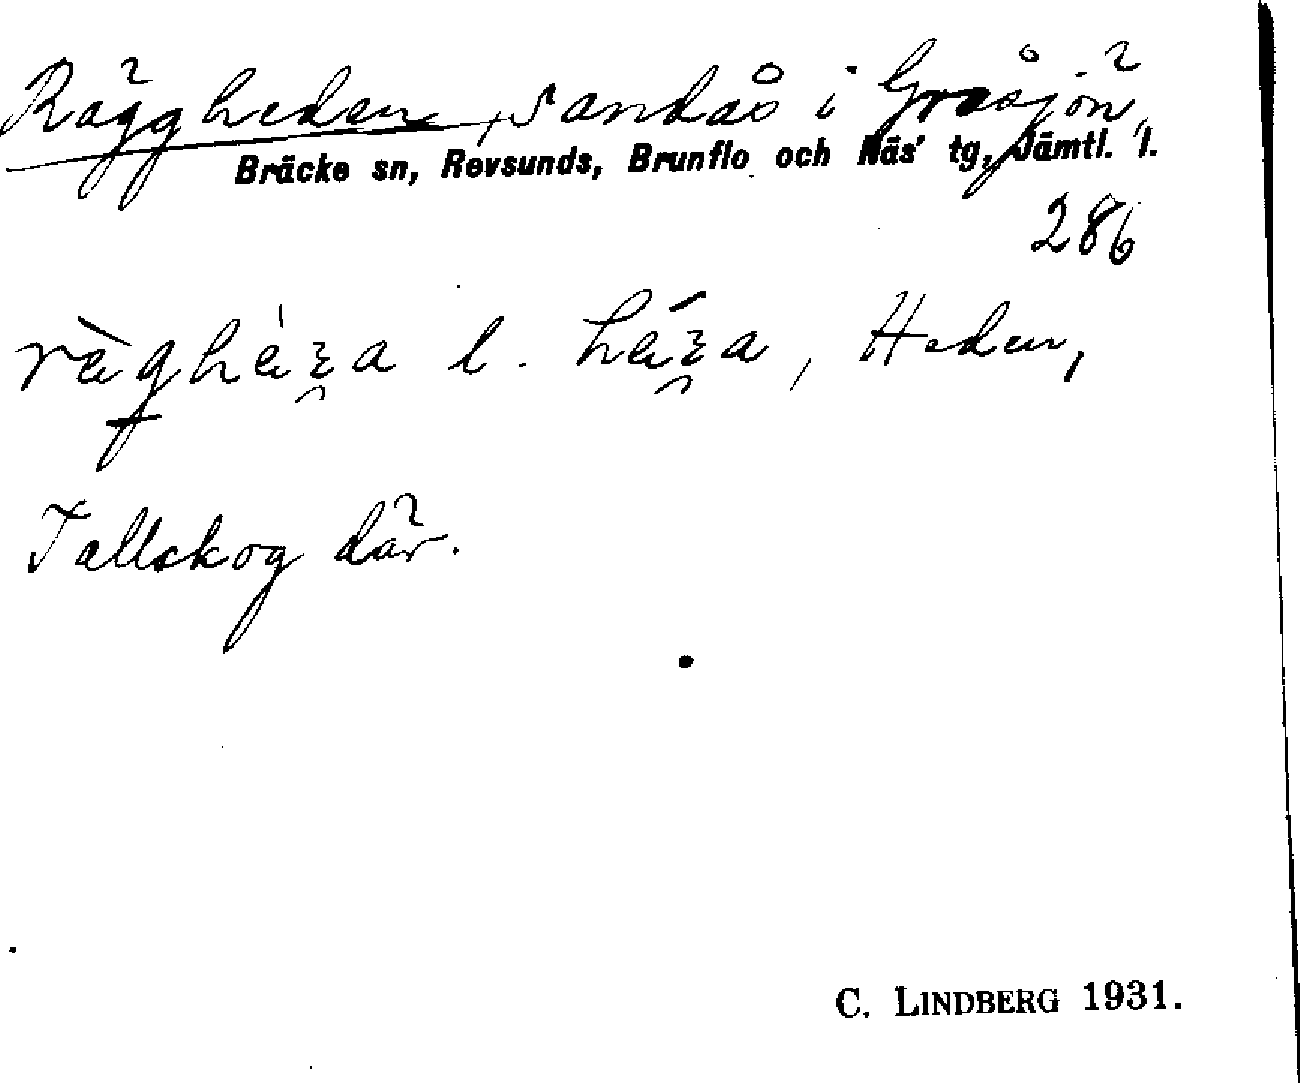 Räggheden, sandås i Gråsjön,
Bräcke sn, Revsunds, Brunflo och Näs' tg, Jämtl. l.
286
l. Heden,
Tallskog där.
C. LINDBERG 1931.